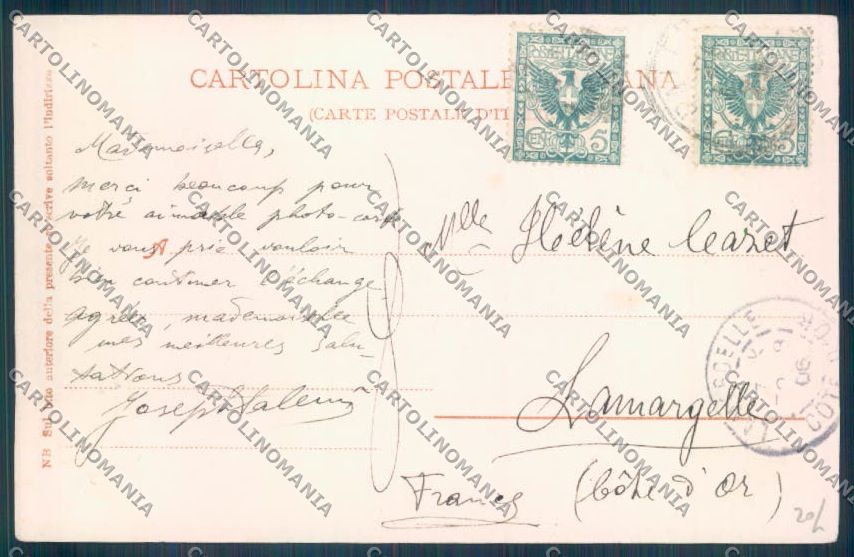 CARTOLINA POSTALE ITALIANA
(CARTE POSTALE D'IT
NB Sul lato anteriore della presente si scrive soltanto l'indirizzo
Mademoiselle,
merci beaucoup pour
votre aimable photo-carte
Je vous prie vouloir
bien continuer l'échange
agréez, mademoiselle
mes meilleures salu-
tations
Joseph
Mlle Hélène
Lamargelle
(Côte d'or)
France
POSTE ITALIANE
5
5
LAMARGELLE
COTE
20/
CARTOLINOMANIA